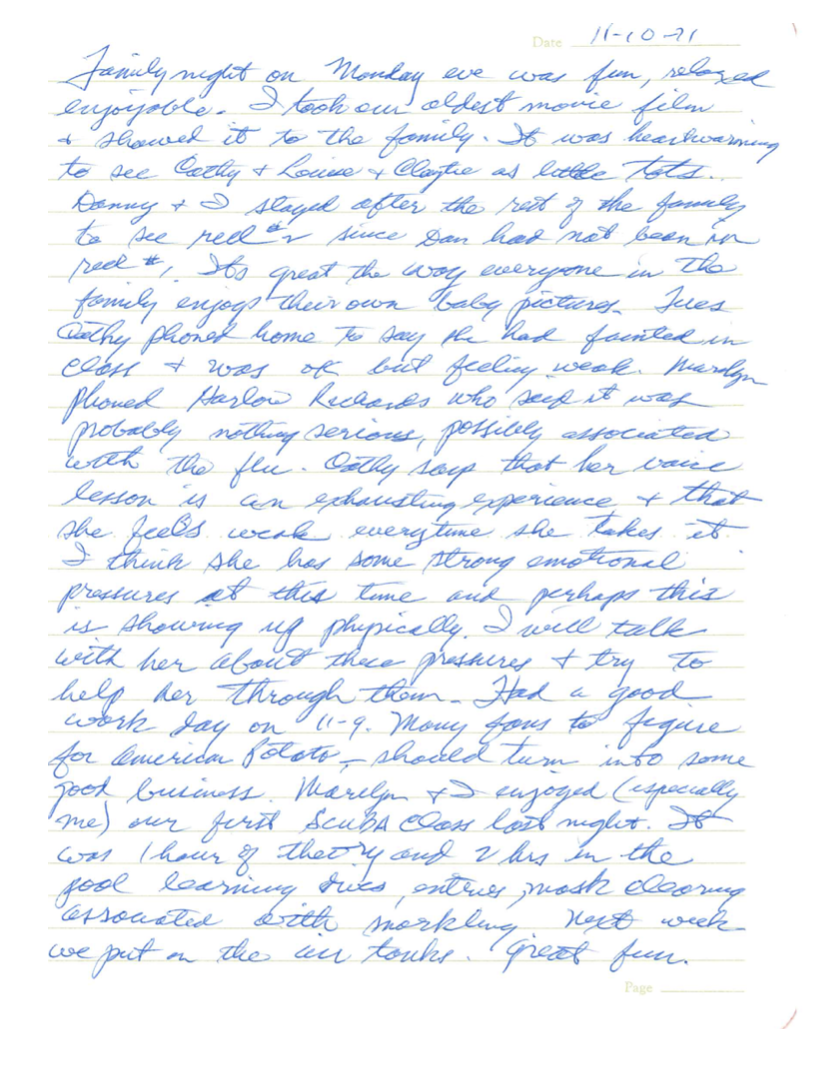 Date 11-10-71
Family night on Monday eve was fun, relaxed
enjoyable. I took our oldest movie film
+ showed it to the family. It was heartwarming
to see Cathy + Louise + Claytie as little tots.
Danny + I stayed after the rest of the family
to see reel #2 since Dan had not been in
reel #1. Its great the way everyone in the
family enjoys their own baby pictures. Tues
Cathy phoned home to say she had fainted in
class + was ok but feeling weak. Marilyn
phoned Harlow Richards who said it was
probably nothing serious, possibly associated
with the flu. Cathy says that her voice
lesson is an exhausting experience + that
she feels weak everytime she takes it.
I think she has some strong emotional
pressures at this time and perhaps this
is showing up physically. I will talk
with her about these pressures + try to
help her through them. Had a good
work day on 11-9. Many fans to figure
for American Potato - should turn into some
good business. Marilyn + I enjoyed (especially
me) our first SCUBA class last night. It
was 1 hour of theory and 2 hrs in the
pool learning dives, entries, mask clearing
associated with snorkling. Next week
we put on the air tanks. Great fun.
Page